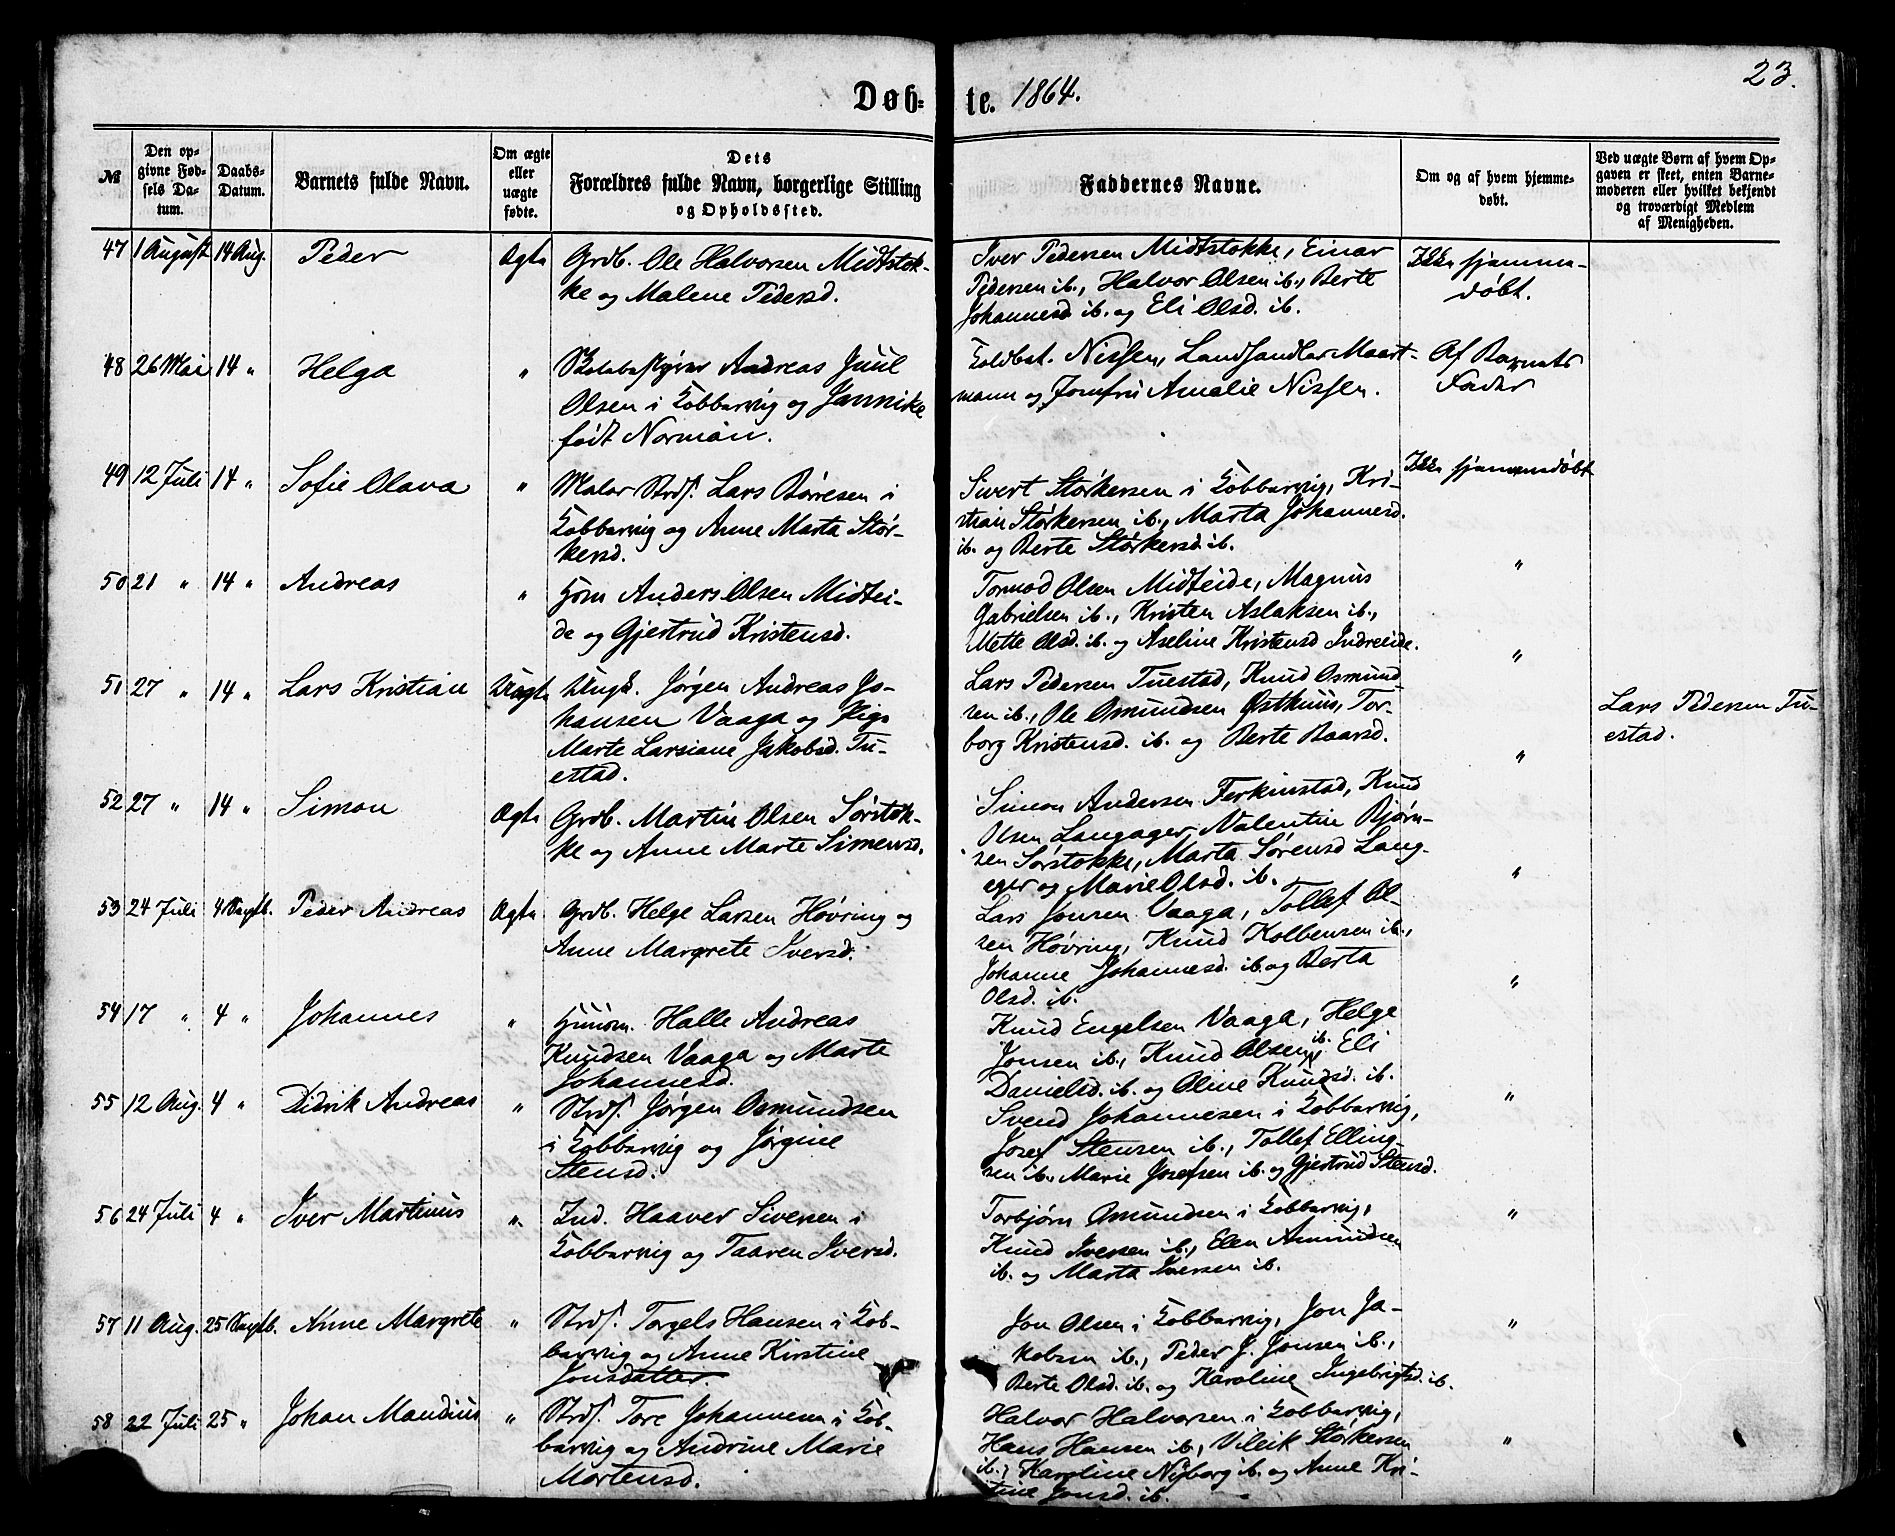 Døb-te. 1864.
23.
№
Den opgivne Fødsels Datum.
Daabs-Datum.
Barnets fulde Navn.
Om ægte eller uægte fødte.
Dets Forældres fulde Navn, borgerlige Stilling og Opholdssted.
Faddernes Navne.
Om og af hvem hjemmedøbt.
Ved uægte Børn af hvem Opgaven er skeet, enten Barnemoderen eller hvilket bekjendt og troværdigt Medlem af Menigheden.
47 1 August 14 Aug. Peder Ægte
Grdb. Ole Halvorsen Midtstok-
ke og Malene Pedersd.
Iver Pedersen Midtstokke, Einar
Pedersen ib., Halvor Olsen ib., Berte
Johannesd. ib. og Eli Olsd. ib.
Ikke hjemme-
døbt.
48 26 Mai 14 " Helga "
Andreas Juul
Olsen i Kobbervig og Jannike
født Norman.
Toldbet. Nissen, Landhandler Maart-
mann og Jomfru Amalie Nissen.
Af Barnets
Fader
49 12 Juli 14 " Sofie Olava "
Maler Strds. Lars Børresen i
Kobbervig og Anne Marta Stør-
kersd.
Sivert Størkersen i Kobbervig, Kri-
stian Størkersen ib., Marta Johannesd.
ib. og Berte Størkersd. ib.
Ikke hjemmedøbt
50 21 " 14 " Andreas "
Hsm Anders Olsen Midtei-
de og Gjertrud Kristensd.
Tormod Olsen Midteide, Magnus
Gabrielsen ib., Kristen Aslaksen ib.,
Mette Olsd. ib. og Aseline Kristensd Indreeide.
"
51 27 " 14 " Lars Kristian Uægte
Ungk. Jørgen Andreas Jo-
hansen Vaaga og Pige
Marte Larsiane Jakobsd. Tu-
estad.
Lars Pedersen Tuestad, Knud Osmund-
sen ib., Ole Osmundsen Østhuus, Tor-
borg Kristensd. ib. og Berte Baarsd.
"
Lars Pedersen Tu-
estad.
52 27 " 14 " Simon Ægte
Grdb. Martin Olsen Sørstok-
ke og Anne Marte Simensd.
Simon Andersen Ferkinstad, Knud
Olsen Langager, Valentin Bjørn-
sen Sørstokke, Marta Sørensd Lang-
eger og Marie Olsd. ib.
"
53 24 Juli 4 Septb. Peder Andreas Ægte
Grdb. Helge Larsen Høvring og
Anne Margrete Iversd.
Lars Jonsen Vaaga, Tollef Ol-
sen Høvring, Knud Kolbensen ib.,
Johanne Johannesd. ib. og Berta
Olsd. ib.
"
54 17 " 4 " Johannes "
Huusm. Halle Andreas
Knudsen Vaaga og Marte
Johannesd.
Knud Engelsen Vaaga, Helge
Jonsen ib., Knud Olsen ib., Eli
Danielsd. ib. og Oline Knudsd. ib.
"
55 12 Aug. 4 " Didrik Andreas "
Strds. Jørgen Osmundsen
i Kobbervig og Jørgine
Stensd.
Svend Johannesen i Kobbervig,
Josef Stensen ib., Tollef Elling-
sen ib., Marie Josefsen ib. og Gjertrud Stensd.
"
56 24 Juli 4 " Iver Martinus "
Ind. Haaver Siversen i
Kobbervig og Taaren Iversd.
Torbjørn Osmundsen i Kobbervig,
Knud Iversen ib., Elen Asmundsen
ib. og Marta Iversen ib.
"
57 11 Aug. 25 Septb. Anne Margrete "
Strds. Torgels Hansen i Kob-
bervig og Anne Kirstine
Jonsdatter.
Jon Olsen i Kobbervig, Jon Ja-
kobsen ib., Peder J. Jonsen ib.,
Berte Olsd. ib. og Karoline Ingebrigtsd. ib.
"
58 22 Juli 25 " Johan Mandius "
Strds. Tore Johannesen i Kob-
bervig og Andrine Marie
Mortensd.
Halvor Halvorsen i Kobbervig,
Hans Hansen ib., Vileik Størkersen
ib., Karoline Nyborg ib. og Anne Kri-
stine Jonsd. ib.